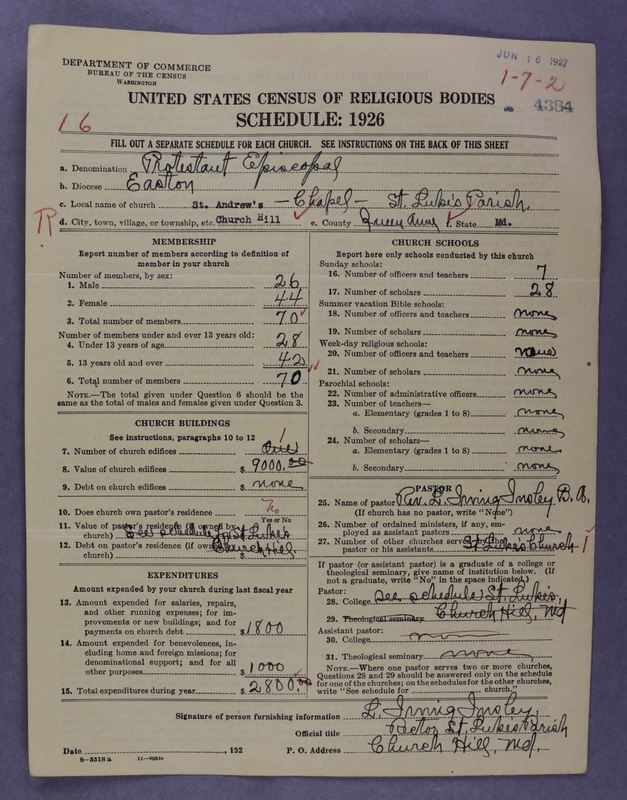 DEPARTMENT OF COMMERCE
BUREAU OF THE CENSUS
WASHINGTON
JUN 16 1927
1-7-2
4384
UNITED STATES CENSUS OF RELIGIOUS BODIES
SCHEDULE: 1926
16
FILL OUT A SEPARATE SCHEDULE FOR EACH CHURCH. SEE INSTRUCTIONS ON THE BACK OF THIS SHEET
a. Denomination Protestant Episcopal
b. Diocese Easton
c. Local name of church St. Andrew's - Chapel - St. Luke's Parish
R
d. City, town, village, or township, etc. Church Hill e. County Queen Anne f. State Md.
MEMBERSHIP
Report number of members according to definition of
member in your church
Number of members, by sex:
1. Male 26
2. Female 44
3. Total number of members 70
Number of members under and over 13 years old:
4. Under 13 years of age 28
5. 13 years old and over 42
6. Total number of members 70
NOTE.—The total given under Question 6 should be the
same as the total of males and females given under Question 3.
CHURCH BUILDINGS
See instructions, paragraphs 10 to 12
1
7. Number of church edifices One
8. Value of church edifices $ 9000.00
9. Debt on church edifices $ none
10. Does church own pastor's residence? No
Yes or No
11. Value of pastor's residence (if owned by
church) See schedule for St. Luke's
12. Debt on pastor's residence (if owned by
church) $ Church Hill
EXPENDITURES
Amount expended by your church during last fiscal year
13. Amount expended for salaries, repairs,
and other running expenses; for im-
provements or new buildings; and for
payments on church debt $ 1800
14. Amount expended for benevolences, in-
cluding home and foreign missions; for
denominational support; and for all
other purposes $ 1000
15. Total expenditures during year $ 2800.00
CHURCH SCHOOLS
Report here only schools conducted by this church
Sunday schools:
16. Number of officers and teachers 7
17. Number of scholars 28
Summer vacation Bible schools:
18. Number of officers and teachers none
19. Number of scholars none
Week-day religious schools:
20. Number of officers and teachers none
21. Number of scholars none
Parochial schools:
22. Number of administrative officers none
23. Number of teachers—
a. Elementary (grades 1 to 8) none
b. Secondary none
24. Number of scholars—
a. Elementary (grades 1 to 8) none
b. Secondary none
PASTOR
25. Name of pastor Rev. L. Irving Insley B.A.
(If church has no pastor, write "None")
26. Number of ordained ministers, if any, em-
ployed as assistant pastors none
27. Number of other churches served by the
pastor or his assistants St Luke's Church - 1
If pastor (or assistant pastor) is a graduate of a college or
theological seminary, give name of institution below. (If
not a graduate, write "No" in the space indicated.)
Pastor:
28. College see schedule St. Luke's,
29. Theological seminary Church Hill, Md
Assistant pastor:
30. College
31. Theological seminary none
NOTE.—Where one pastor serves two or more churches,
Questions 28 and 29 should be answered only on the schedule
for one of the churches; on the schedules for the other churches,
write "See schedule for church."
Signature of person furnishing information L. Irving Insley,
Official title Rector St. Luke's Parish
Date , 192 P. O. Address Church Hill, Md.
8-5518a